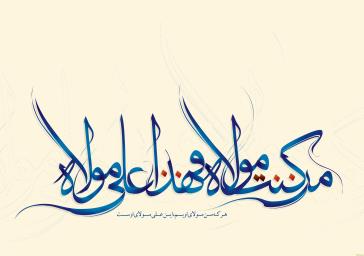 من كنت مولاه فهذا علی مولاه
هر که من مولای اویم، این علی مولای اوست